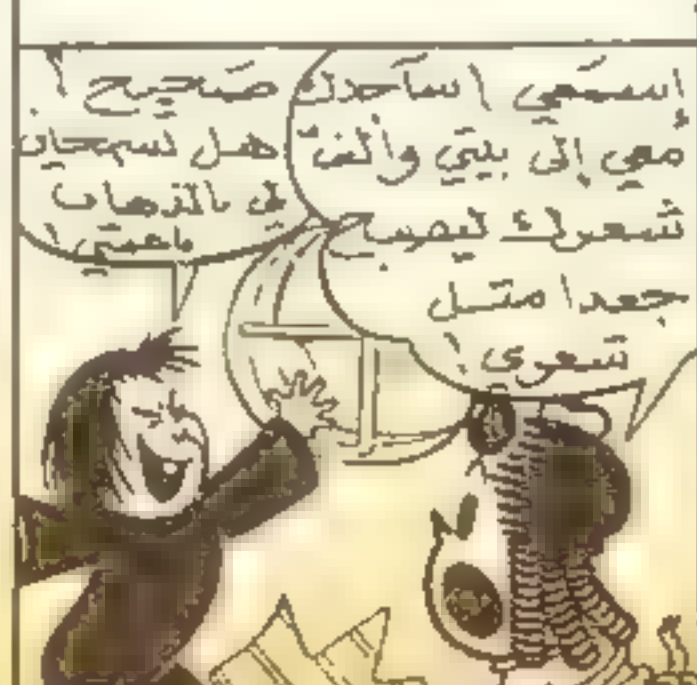 إسمَعي ! سآخذك
معي إلى بيتي وألفّ
شعرك ليصبح
جعدا مثل
شعري !
صَحيح !
هل تسمحين
لي بالذهاب
ياعمتي !